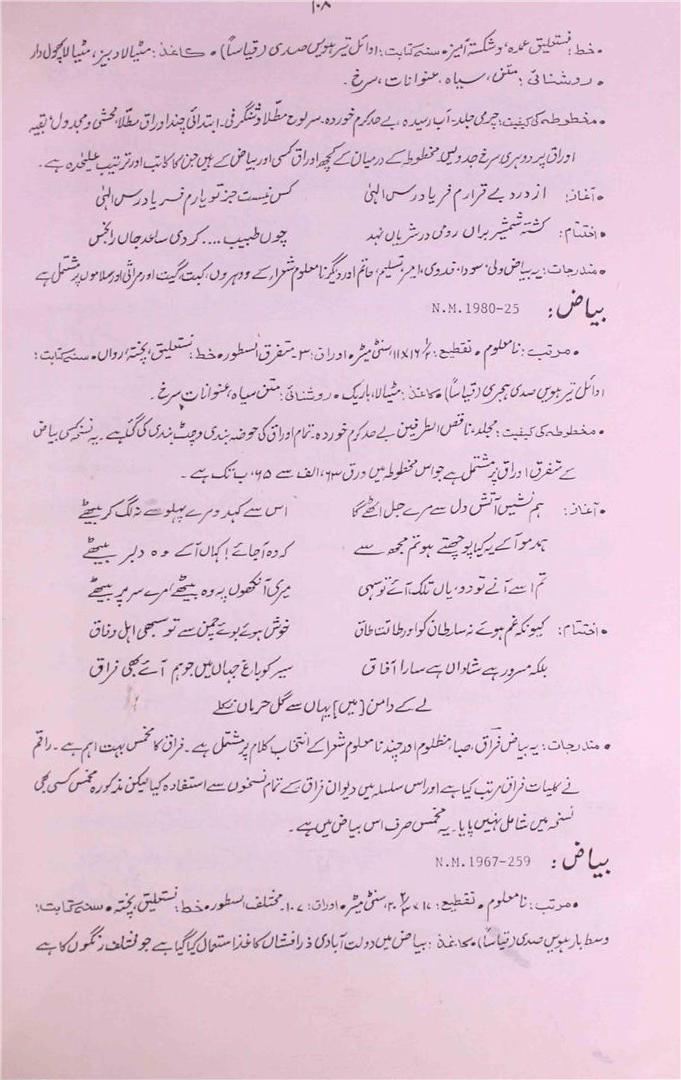 ۱۰۸
• خط: نستعلیق عمدہ، و شکستہ آمیز • سنہ کتابت: اوائل تیرہویں صدی (قیاساً) • کاغذ: مٹیالا دبیز، مٹیالا پھول دار
• روشنائی: متن، سیاہ، عنوانات، سرخ۔
• مخطوطہ کی کیفیت: چرمی جلد۔ آب رسیدہ، بے حد کرم خوردہ۔ سر لوح مطلا و شنگرفی۔ ابتدائی چند اوراق مطلا، محشی و مجدول، بقیہ
اوراق پر دوہری سرخ جدولیں۔ مخطوطے کے درمیان کے کچھ اوراق کسی اور بیاض کے ہیں جن کا کاتب اور ترتیب علیحدہ ہے۔
• آغاز: از درد بے قرارم فریاد رس الٰہی کس نیست جز تو یارم فریاد رس الٰہی
• اختتام: کشتہ شمشیر براں رومی در شریاں نہد چوں طبیب .... کردی ساعد جاں را بخس
• مندرجات: یہ بیاض ولی، سودا، فدوی، امیر، تسلیم، حاتم اور دیگر نامعلوم شعراء کے دوہروں، کبت، گیت اور مراثی اور سلاموں پر مشتمل ہے
بیاض: N.M.1980-25
• مرتب: نامعلوم • تقطیع: ۱۶ ۱/۲ × ۱۱ سنٹی میٹر • اوراق: ۳۔ متفرق السطور • خط: نستعلیق، پختہ، رواں • سنہ کتابت:
اوائل تیرہویں صدی ہجری (قیاساً) • کاغذ: مٹیالا، باریک • روشنائی: متن سیاہ، عنوانات سرخ۔
• مخطوطہ کی کیفیت: مجلد، ناقص الطرفین بے حد کرم خوردہ۔ تمام اوراق کی حوضہ بندی و چٹ بندی کی گئی ہے۔ یہ نسخہ کسی بیاض
کے متفرق اوراق پر مشتمل ہے جو اس مخطوطہ میں ورق ۶۳، الف سے ۶۵، ب تک ہے۔
• آغاز: ہم نشیں آتش دل سے مرے جل اٹھے گا اس سے کہدو مرے پہلو سے نہ لگ کر بیٹھے
ہمدمو آکے یہ کیا پوچھتے ہو تم مجھ سے کہ وہ آجائے! کہاں آکے وہ دلبر بیٹھے
تم اسے آنے تو دو، یاں تلک آئے تو سہی میری آنکھوں پہ وہ بیٹھے، مرے سر پر بیٹھے
• اختتام: کیونکہ غم ہوئے نہ سارطان کو اور طاقت طاق خوش ہوئے بوئے چمن سے تو سبھی اہل وفاق
بلکہ مسرور ہے شاداں ہے سارا آفاق سیر کو باغ جہاں میں جو ہم آئے بھی فراق
لے کے دامن [میں] یہاں سے گل حرماں نکلے
• مندرجات: یہ بیاض فراق، صبا، مظلوم اور چند نامعلوم شعرا کے انتخاب کلام پر مشتمل ہے۔ فراق کا مخمس بہت اہم ہے۔ راقم
نے کلیات فراق مرتب کیا ہے اور اس سلسلہ میں دیوان فراق کے تمام نسخوں سے استفادہ کیا لیکن مذکورہ مخمس کسی بھی
نسخہ میں شامل نہیں پایا۔ یہ مخمس صرف اس بیاض میں ہے۔
بیاض: N.M.1967-259
• مرتب: نامعلوم • تقطیع: ۱۷ × ۲۰ ۲/۳ سنٹی میٹر • اوراق: ۱۰۷۔ مختلف السطور • خط: نستعلیق، پختہ • سنہ کتابت:
وسط بارہویں صدی (قیاساً) • کاغذ: بیاض میں دولت آبادی ذرافشاں کاغذ استعمال کیا گیا ہے جو مختلف رنگوں کا ہے